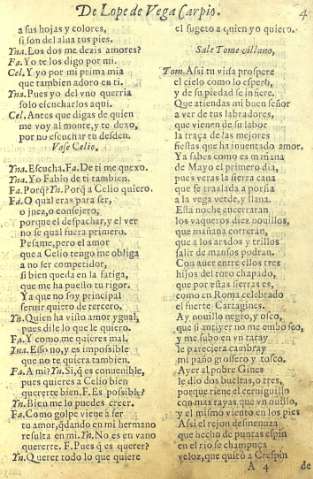 De Lope de Vega Carpio. 4
a sus hojas y colores,
si son del alua tus pies.
Yna. Los dos me dezis amores?
Fa. Yo te los digo por mi.
Cel. Y yo por mi prima mia
que tambien adoro en ti.
Yna. Pues yo del vno querria
solo escucharlos aqui.
Cel. Antes que digas de quien
me voy al monte, y te dexo,
por no escuchar tu desden.
Vase Celio.
Yna. Escucha. Fa. De ti me quexo.
Yna. Yo Fabio de ti tambien.
Fa. Porq̃? Yn. Porq̃ a Celio quiero.
Fa. O qual eras para ser,
o juez, o consejero,
porque el despachar, y el ver
no se qual fuera primero.
Pesame, pero el amor
que a Celio tengo me obliga
a no ser competidor,
si bien queda en la fatiga,
que me ha puesto tu rigor.
Ya que no soy principal
seruir quiero de tercero.
Yn. Quien ha visto amor ygual,
pues dile lo que le quiero.
Fa. Y como, me quieres mal,
Yna. Esso no, y es impossible
que no te quiera tambien.
Fa. A mi? Yn. Si, q̃ es conuenible,
pues quieres a Celio bien
quererte bien. F. Es possible?
Yn. Bien me lo puedes creer.
Fa. Como golpe viene a ser
tu amor, q̃ dando en mi hermano
resulta en mi. Yn. No es en vano
quererte. F. Pues q̃ es querer?
Yn. Querer todo lo que quiere
el sugeto a quien yo quiero.
Sale Tome villano,
Tom. Assi tu vida prospere
el cielo como lo espero,
y de su piedad se infiere.
Que atiendas mi buen señor
a ver de tus labradores,
que vienen de su labor
la traça de las mejores
fiestas que ha inuentado amor.
Ya sabes como es mañana
de Mayo el primero dia,
pues veras la sierra cana
que se traslada a porfia
a la vega verde, y llana.
Esta noche encerraran
los vaqueros diez nouillos,
que mañana correran,
que a los arados y trillos
salir de mansos podran.
Con auer entre ellos tres
hijos del toro chapado,
que por estas sierras es,
como en Roma celebrado
el fuerte Cartagines.
Ay nouillo negro, y osco,
que si antiyer no me embosco,
y me subo en vn taray
le pareciera cambray
mi paño grossero, y tosco.
Ayer al pobre Gines
le dio dos bueltas, o tres,
porque tiene el ceruiguillo
con mas rayas, que vn nouillo,
y el mismo viento en los pies
Assi el rejon desmenuza
que hecho de puntas espin
en el rio se champuça
veloz, que quito a Crespin
A 4 de